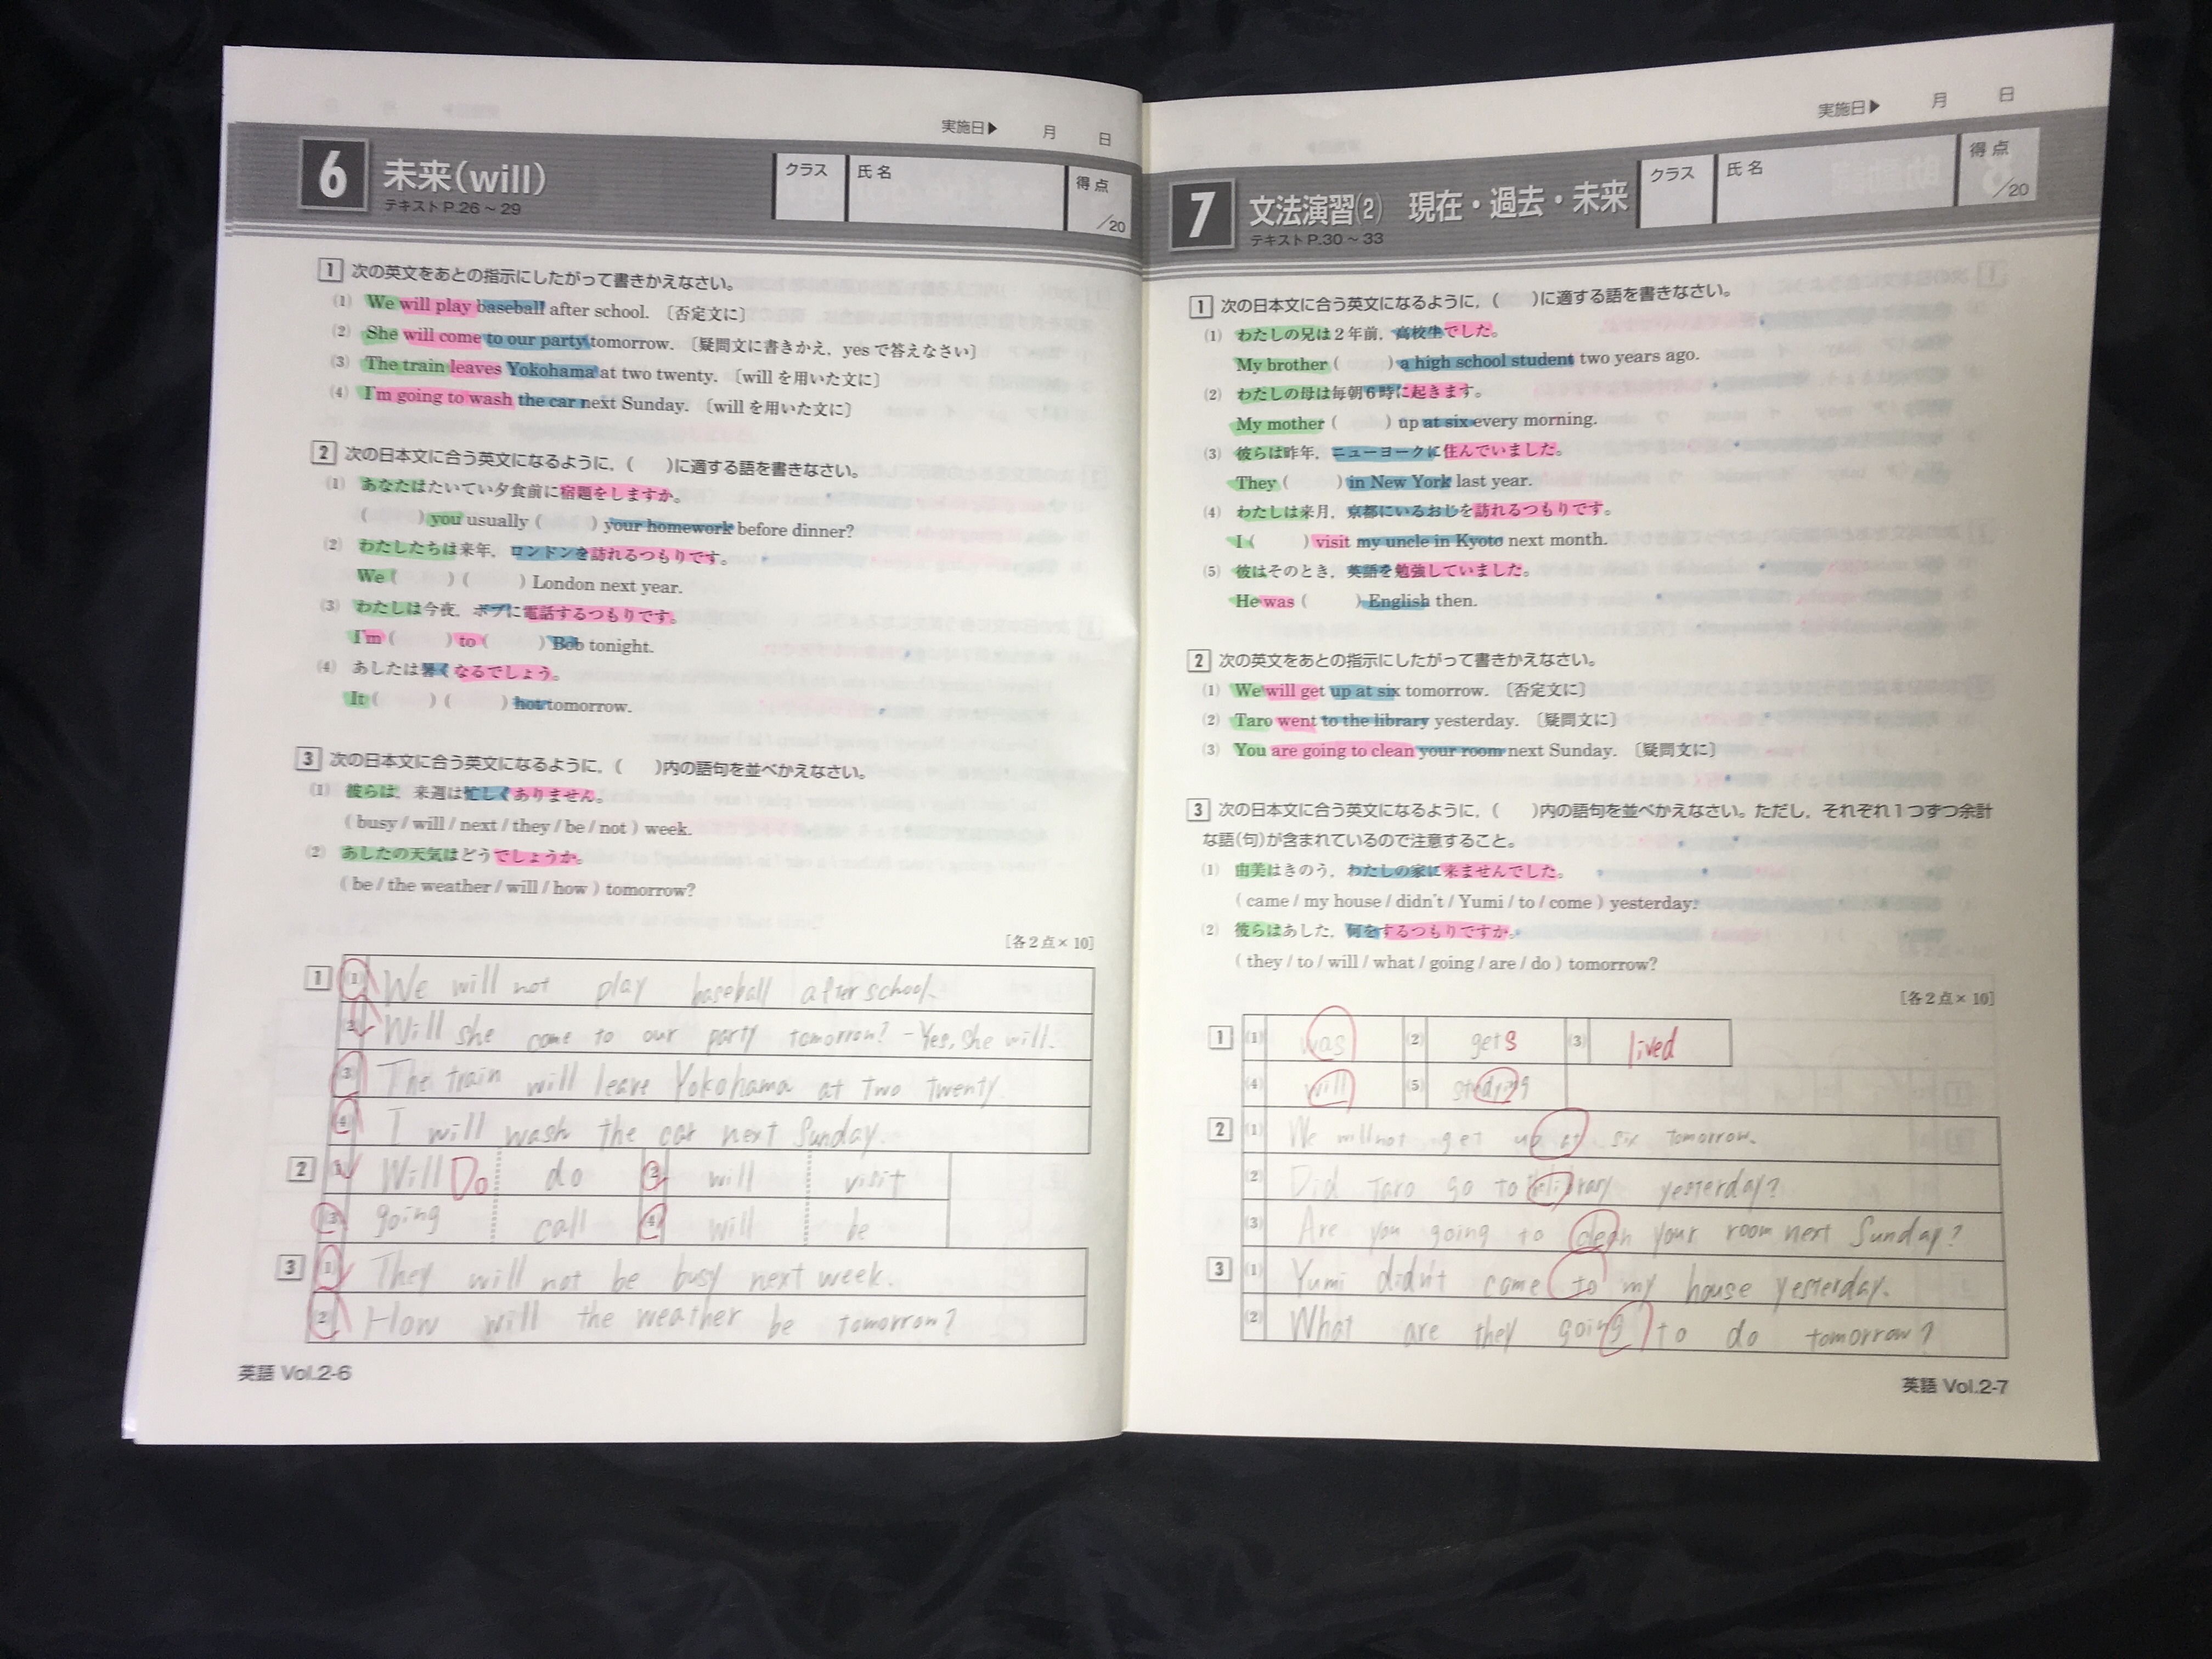 実施日▶ 月 日
6 未来(will)
テキストP.26～29
クラス 氏名 得点 /20
1 次の英文をあとの指示にしたがって書きかえなさい。
(1) We will play baseball after school. 〔否定文に〕
(2) She will come to our party tomorrow. 〔疑問文に書きかえ，yesで答えなさい〕
(3) The train leaves Yokohama at two twenty. 〔willを用いた文に〕
(4) I'm going to wash the car next Sunday. 〔willを用いた文に〕
2 次の日本文に合う英文になるように，( )に適する語を書きなさい。
(1) あなたはたいてい夕食前に宿題をしますか。
( ) you usually ( ) your homework before dinner?
(2) わたしたちは来年，ロンドンを訪れるつもりです。
We ( ) ( ) London next year.
(3) わたしは今夜，ボブに電話するつもりです。
I'm ( ) to ( ) Bob tonight.
(4) あしたは暑くなるでしょう。
It ( ) ( ) hot tomorrow.
3 次の日本文に合う英文になるように，( )内の語句を並べかえなさい。
(1) 彼らは，来週は忙しくありません。
( busy / will / next / they / be / not ) week.
(2) あしたの天気はどうでしょうか。
( be / the weather / will / how ) tomorrow?
[各2点×10]
1 (1) We will not play baseball after school.
(2) Will she come to our party tomorrow? - Yes, she will.
(3) The train will leave Yokohama at two twenty.
(4) I will wash the car next Sunday.
2 (1) Will Do do (2) will visit
(3) going call (4) will be
3 (1) They will not be busy next week.
(2) How will the weather be tomorrow?
英語 Vol.2-6
実施日▶ 月 日
7 文法演習(2) 現在・過去・未来
テキストP.30～33
クラス 氏名 得点 /20
1 次の日本文に合う英文になるように，( )に適する語を書きなさい。
(1) わたしの兄は2年前，高校生でした。
My brother ( ) a high school student two years ago.
(2) わたしの母は毎朝6時に起きます。
My mother ( ) up at six every morning.
(3) 彼らは昨年，ニューヨークに住んでいました。
They ( ) in New York last year.
(4) わたしは来月，京都にいるおじを訪れるつもりです。
I ( ) visit my uncle in Kyoto next month.
(5) 彼はそのとき，英語を勉強していました。
He was ( ) English then.
2 次の英文をあとの指示にしたがって書きかえなさい。
(1) We will get up at six tomorrow. 〔否定文に〕
(2) Taro went to the library yesterday. 〔疑問文に〕
(3) You are going to clean your room next Sunday. 〔疑問文に〕
3 次の日本文に合う英文になるように，( )内の語句を並べかえなさい。ただし，それぞれ1つずつ余計
な語(句)が含まれているので注意すること。
(1) 由美はきのう，わたしの家に来ませんでした。
( came / my house / didn't / Yumi / to / come ) yesterday.
(2) 彼らはあした，何をするつもりですか。
( they / to / will / what / going / are / do ) tomorrow?
[各2点×10]
1 (1) was (2) gets (3) lived
(4) will (5)
2 (1) We will not get up at six tomorrow.
(2) Did Taro go to library yesterday?
(3) Are you going to clean your room next Sunday?
3 (1) Yumi didn't come to my house yesterday.
(2) What are they going to do tomorrow?
英語 Vol.2-7